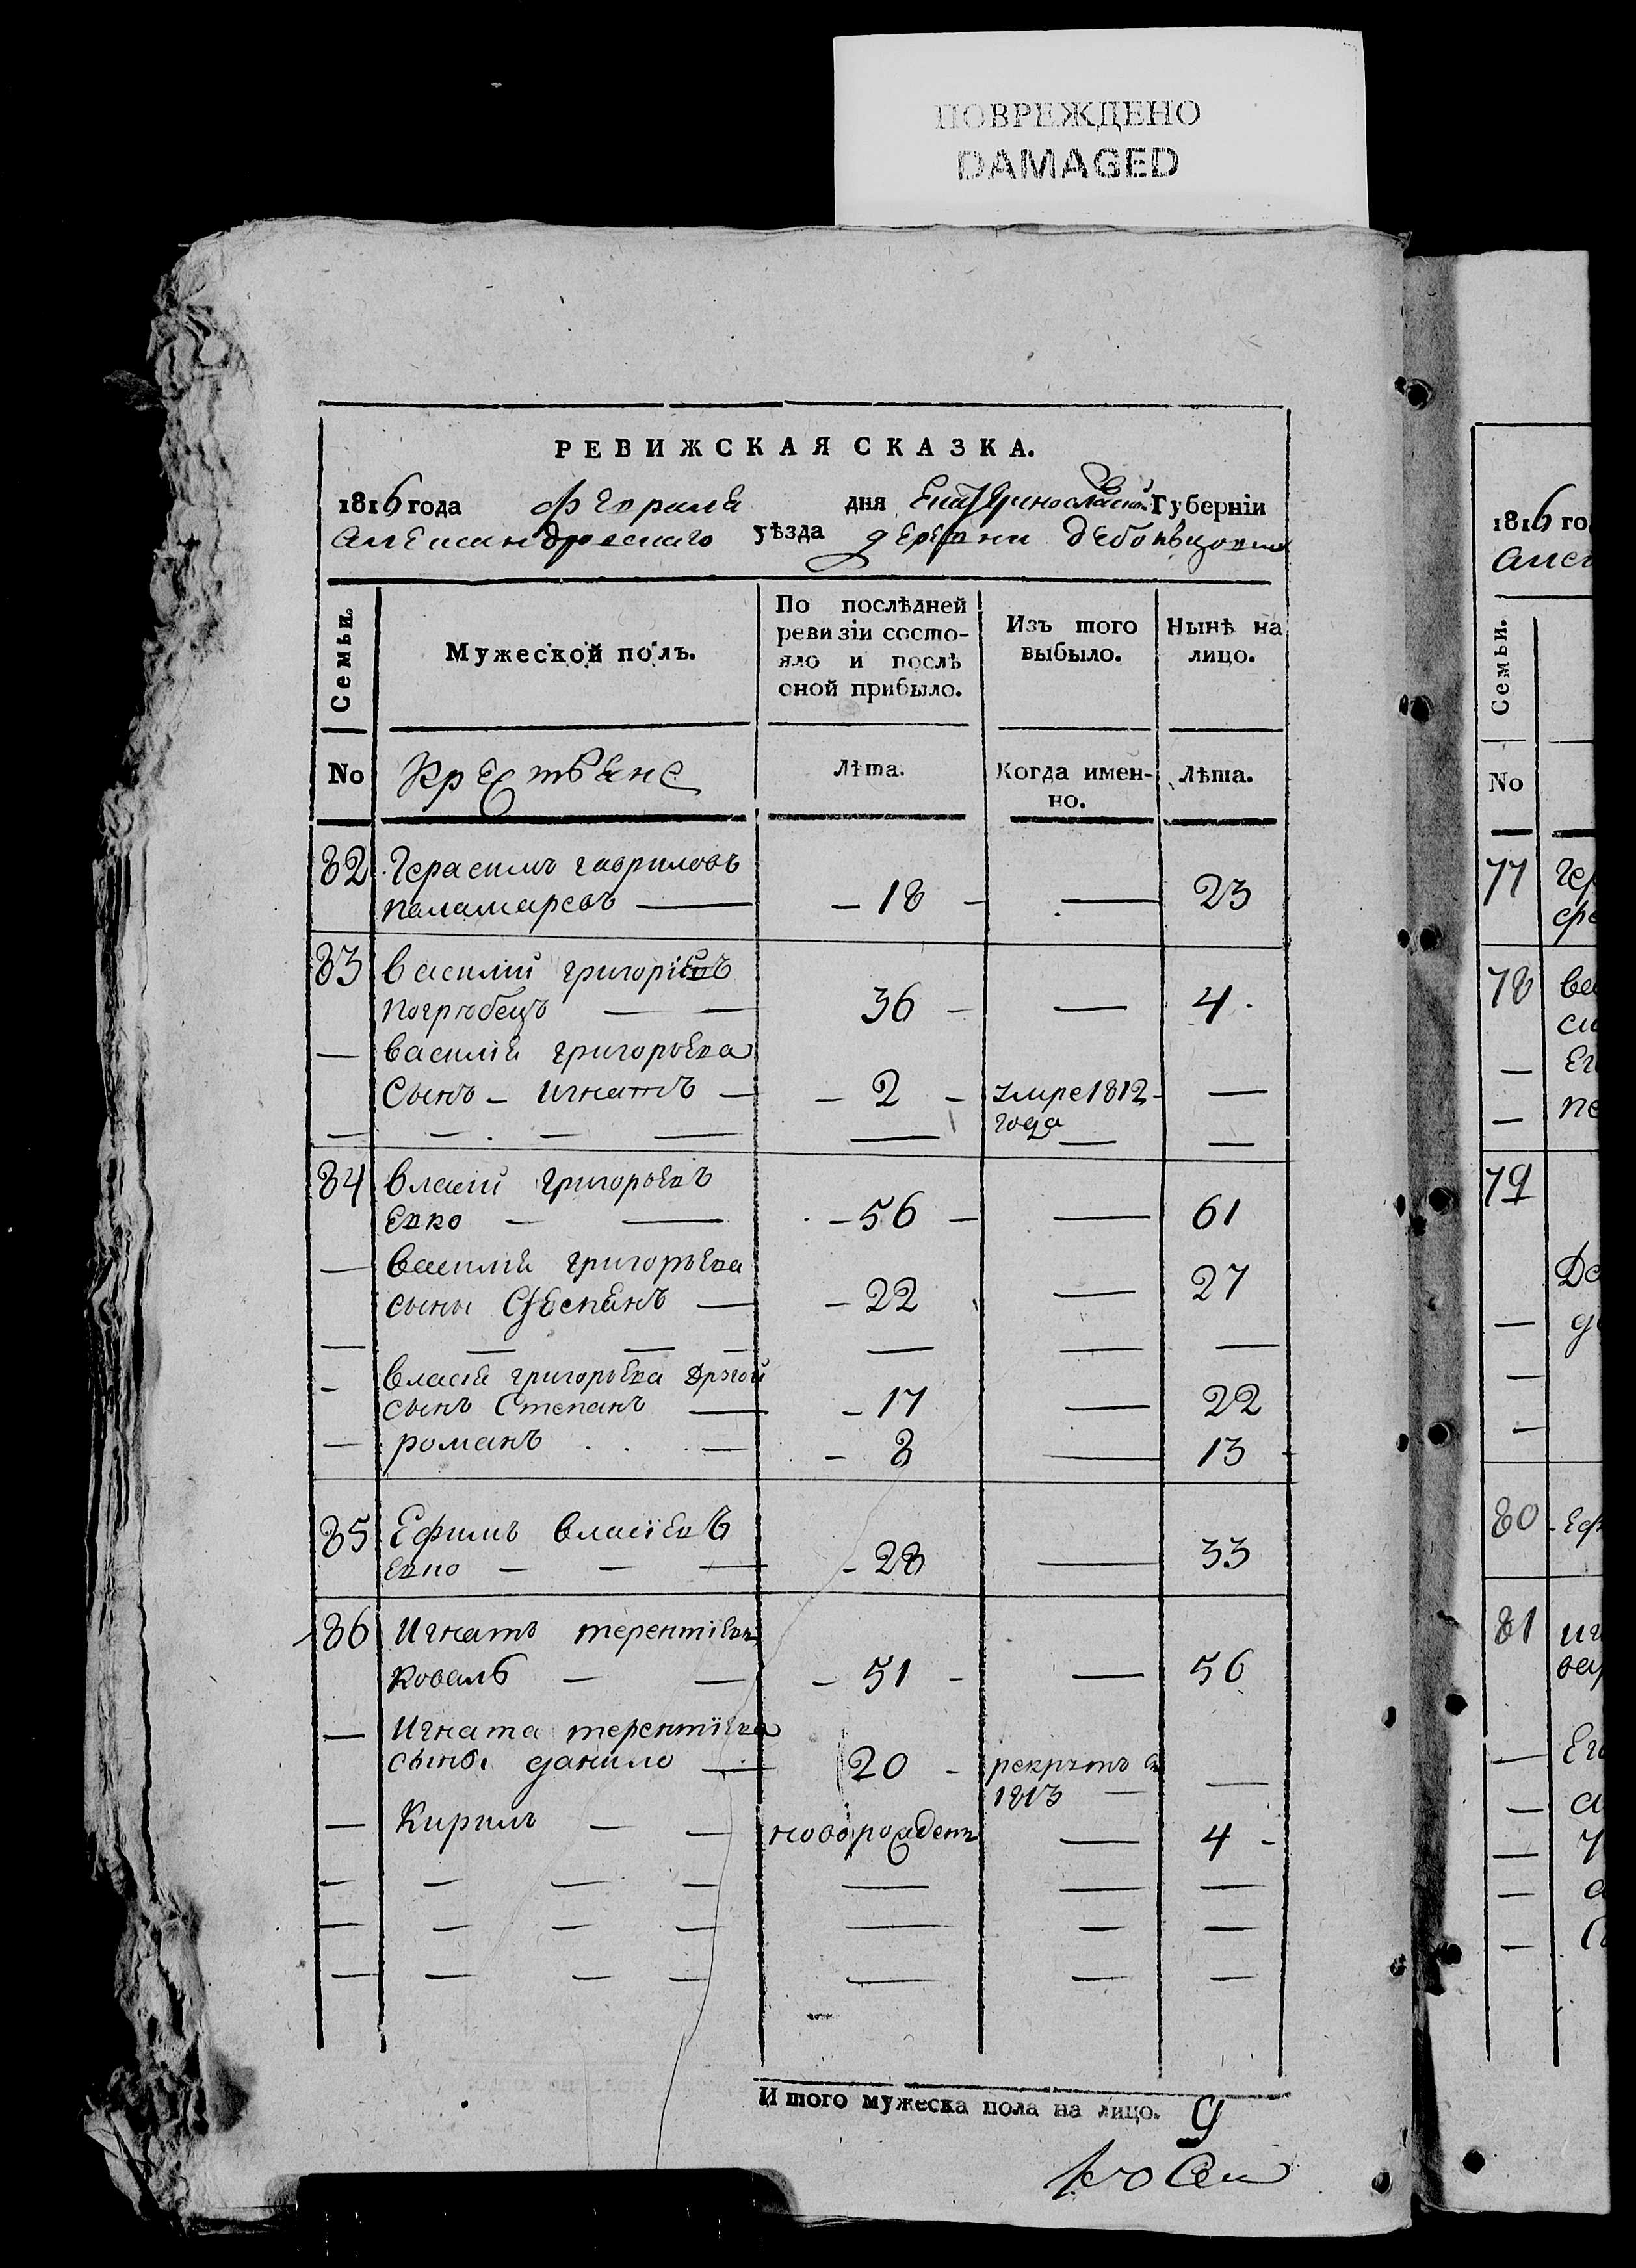 ПОВРЕЖДЕНО
DAMAGED
РЕВИЖСКАЯ СКАЗКА.
1816 года февраля дня Екатеринославской Губерніи
Александровскаго уѣзда деревни
Семьи.
Мужеской полъ.
По послѣдней ревизіи состояло и послѣ оной прибыло.
Изъ того выбыло.
Нынѣ на лицо.
No Крестьяне Лѣта. Когда именно. Лѣта.
82 Герасимъ гавриловъ
паламаревъ — — 18 — — 23
83 василий григорiевъ
погрѣбецъ — — 36 — — 4
— василiя григорьева
Сынъ — игнатъ — — 2 — умре 1812
года —
84 власий григорьевъ
Евко — — — 56 — — 61
— василiя григорьева
сыны Степанъ — — 22 — 27
— власiя григорьева другой
сынъ Степанъ — — 17 — 22
— романъ — — 8 — 13
85 Ефимъ власiевъ
Евко — — — — 28 — 33
86 Игнатъ терентiевъ
Коваль — — — 51 — — 56
— Игната терентiева
сыны данило — 20 — рекрутъ в
1813 — —
— Кирилъ — — новорожденъ — 4 —
Итого мужеска пола на лицо. 9
1816 го
Алек
Семьи.
No
77 гер
78
79
80 Еф
81 иг